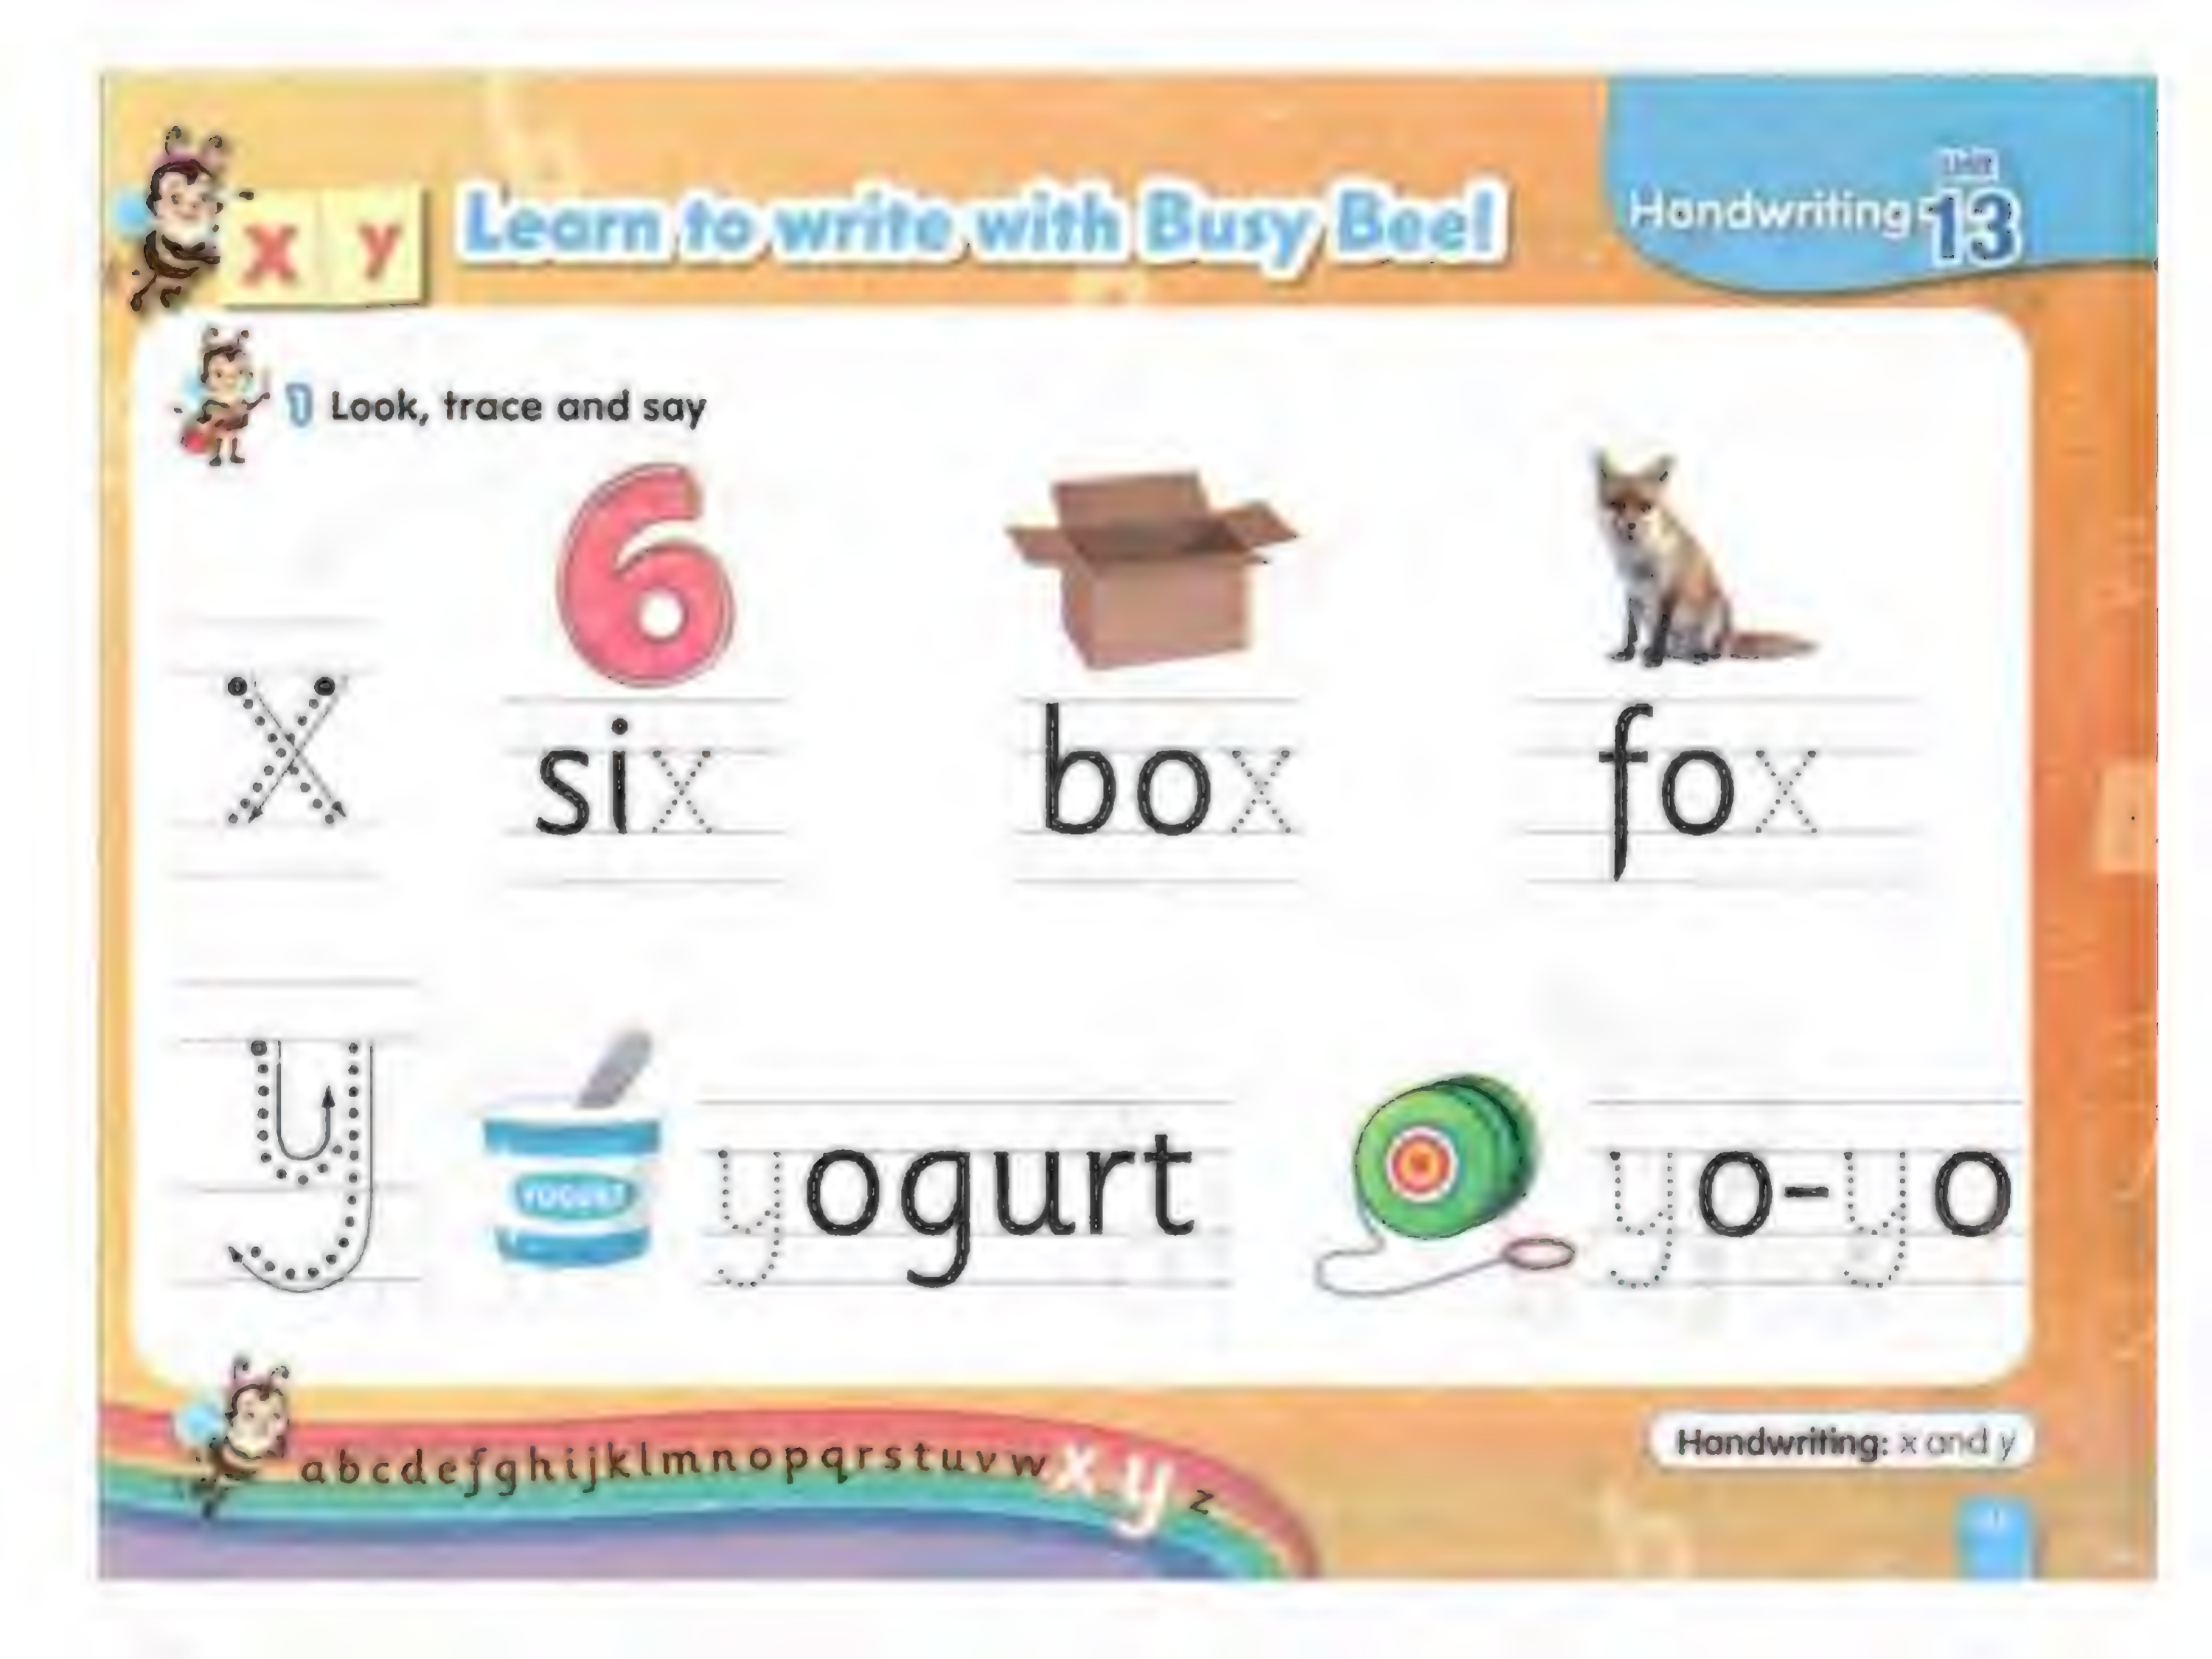 x y
Learn to write with Busy Bee!
Handwriting
Unit 13
1 Look, trace and say
6
x
six
box
fox
y
YOGURT
yogurt
yo-yo
a b c d e f g h i j k l m n o p q r s t u v w x y z
Handwriting: x and y